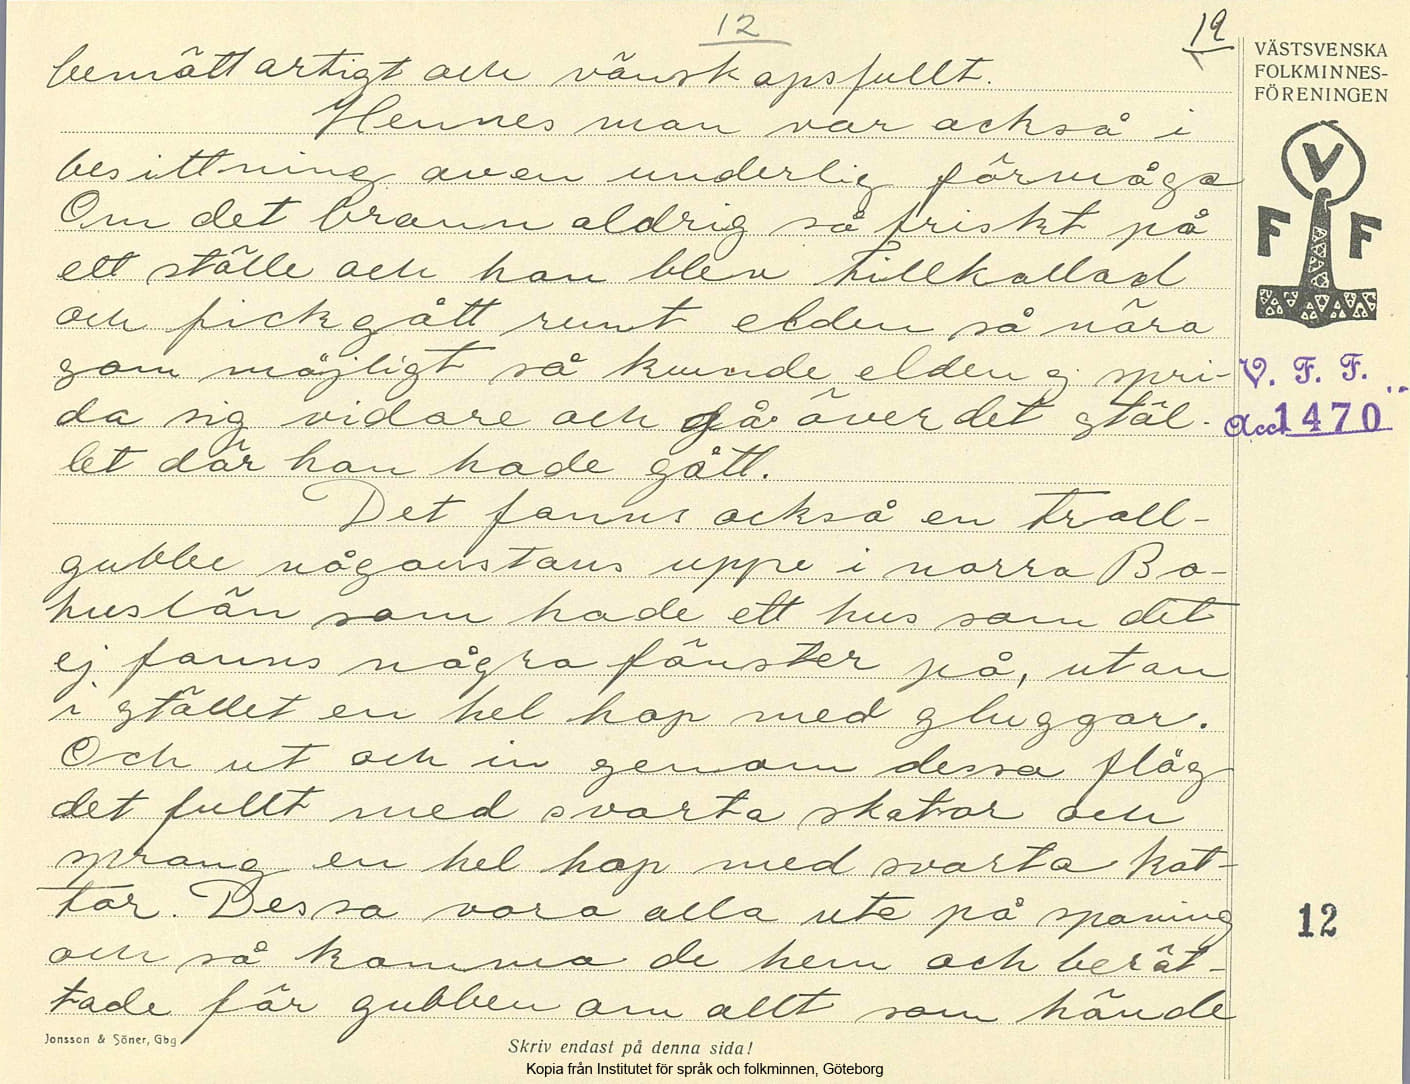 12
12
bemött artigt och vänskapsfullt.
Hennes man var också i
besittning av en underlig förmåga
Om det brann aldrig så friskt på
ett ställe och han blev tillkallad
och fick gått runt elden så nära
som möjligt så kunde elden ej spri-
da sig vidare och gå över det stäl-
let där han hade gått.
Det fanns också en troll-
gubbe någonstans uppe i norra Bo-
huslän som hade ett hus som det
ej fanns några fönster på, utan
i stället en hel hop med gluggar.
Och ut och in genom dessa flög
det fullt med svarta skator och
sprang en hel hop med svarta kat-
tor. Dessa voro alla ute på spaning
och så kommo de hem och berät-
tade för gubben om allt som hände
VÄSTSVENSKA
FOLKMINNES-
FÖRENINGEN
V
F F
V. F. F.
Acc. 1470
12
Jonsson & Söner, Gbg
Skriv endast på denna sida!
Kopia från Institutet för språk och folkminnen, Göteborg